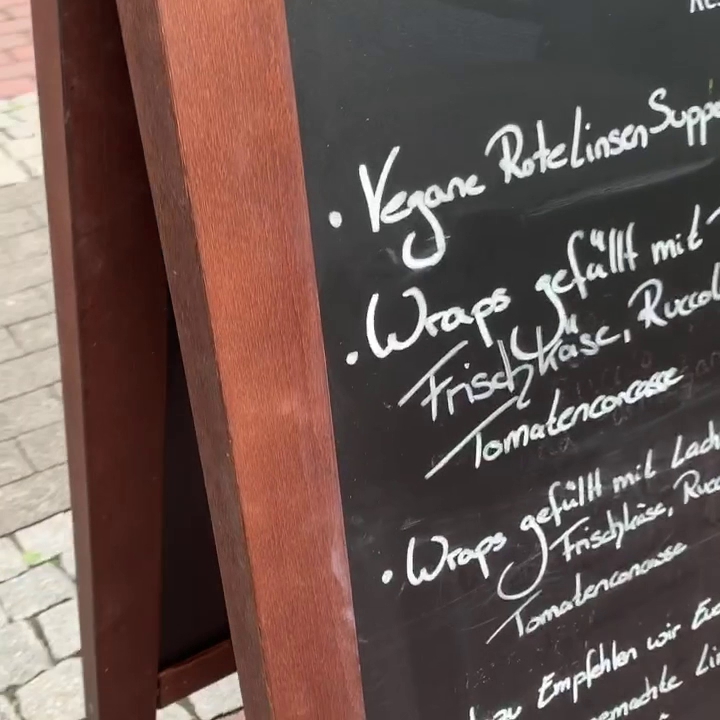 • Vegane Rote Linsen Suppe
• Wraps gefüllt mit
Frischkäse, Ruccol
Tomatenconcasse
• Wraps gefüllt mit Lach
Frischkäse, Rucc
Tomatenconcasse
Empfehlen wir